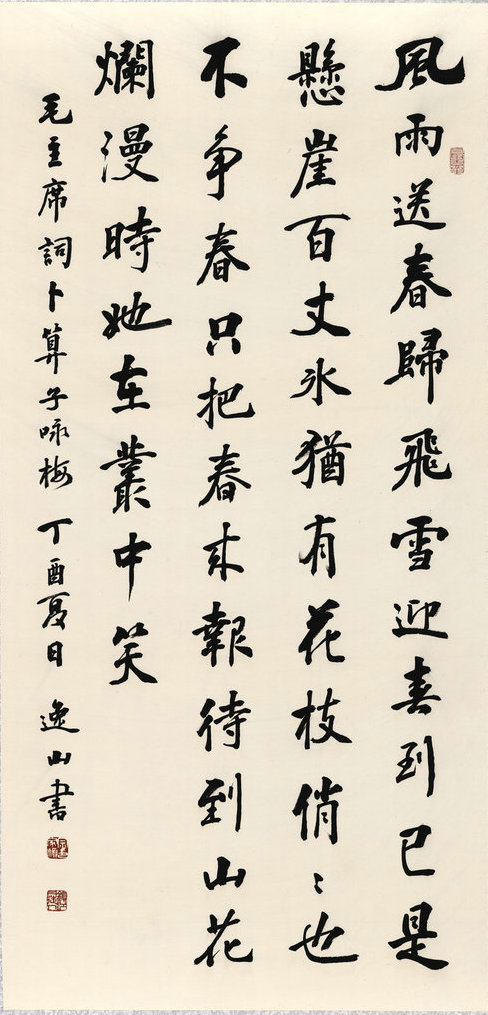 風雨送春歸飛雪迎春到已是
懸崖百丈冰猶有花枝俏〻也
不争春只把春来報待到山花
爛漫時她在叢中笑
毛主席詞卜算子咏梅 丁酉夏日 逸山書